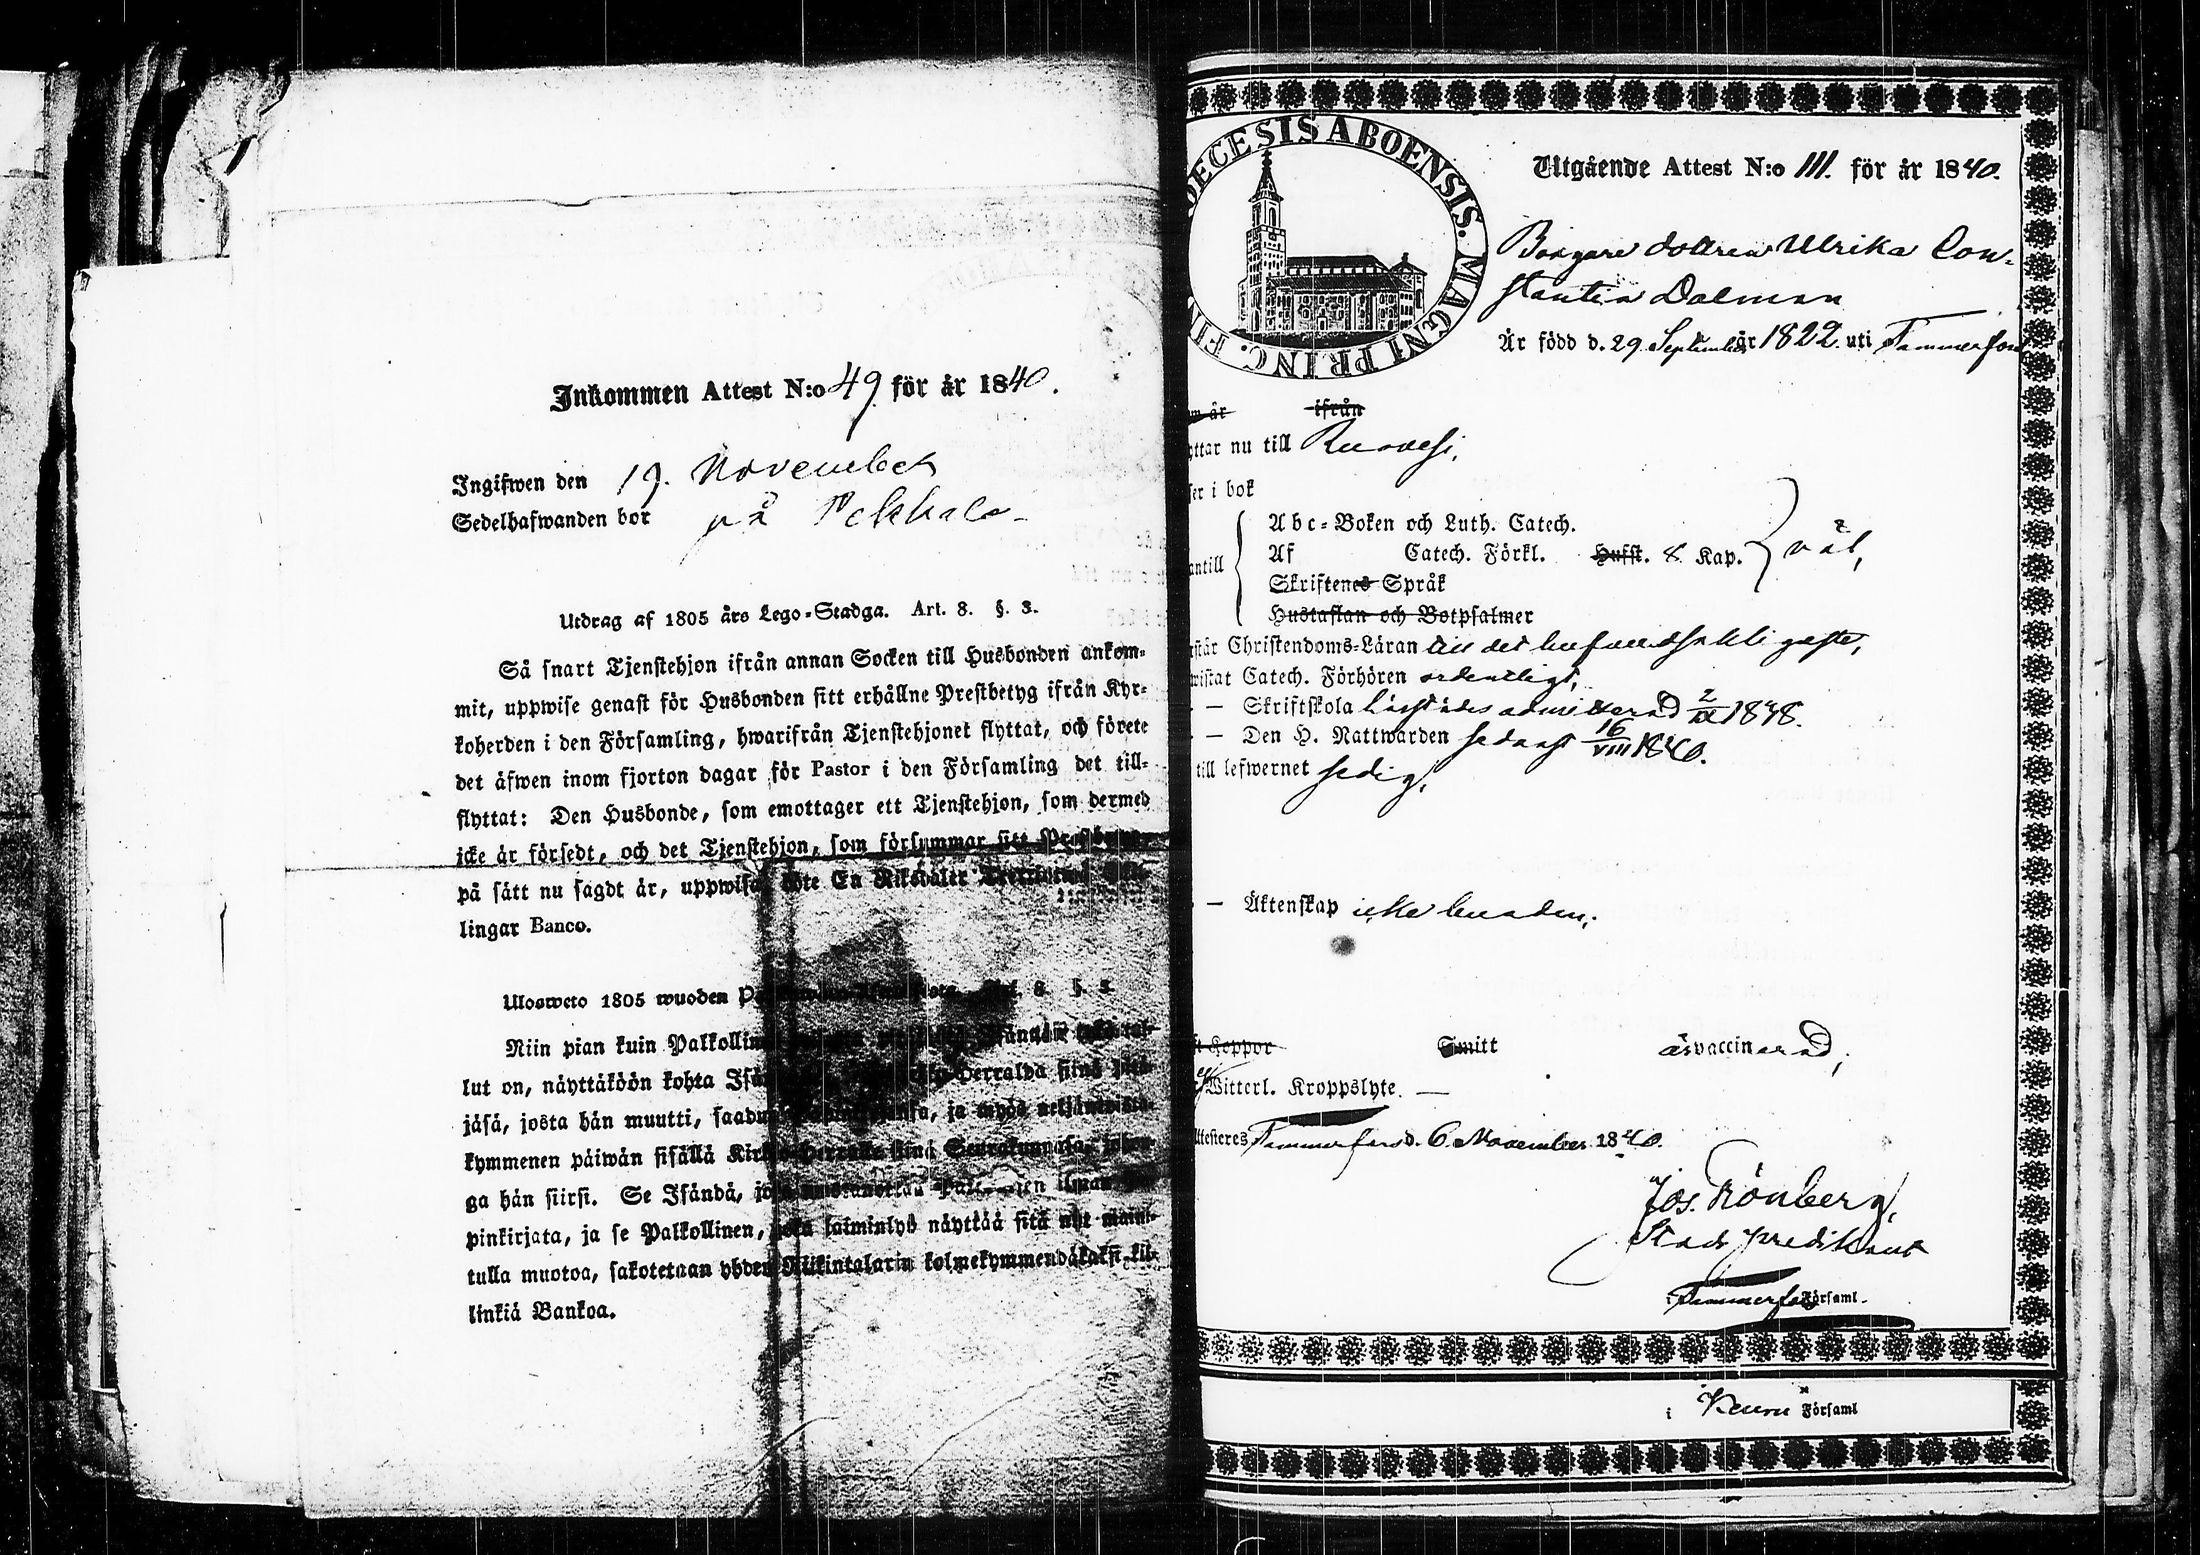 Inkommen Attest N:o 49 för år 1840.
Ingifwen den 19. November
Sedelhafwanden bor på Pekkala
Utdrag af 1805 års Lego-Stadga. Art. 8. §. 3.
Så snart Tjenstehjon ifrån annan Socken till Husbonden ankom-
mit, uppwise genast för Husbonden sitt erhållne Prestbetyg ifrån Kyr-
koherden i den Församling, hwarifrån Tjenstehjonet flyttat, och förete
det äfwen inom fjorton dagar för Pastor i den Församling det till-
flyttat: Den Husbonde, som emottager ett Tjenstehjon, som dermed
icke är försedt, och det Tjenstehjon, som försummar sitt
på sätt nu sagdt är, uppwisa, böte En Riksdaler
lingar Banco.
Ulosweto 1805 wuoden
Niin pian kuin Palkollinen
lut on, näyttäköön kohta Isä Herralda siinä
jäsä, josta hän muutti, ja myös neljäntoista
kymmenen päiwän sisällä Kirkko-Herralle siinä Seurakunnasa, johon-
ga hän siirsi. Se Isändä, ilman
pinkirjata, ja se Palkollinen, joka laiminlyö näyttää sitä nyt mainit-
tulla muotoa, sakotetaan yhden Riikintalarin kolmekymmendäkaksi kil-
linkiä Bankoa.
DECESIS ABOENSIS. MAGNI PRINC. FIN
Utgående Attest N:o 111. för år 1840.
Borgare dottren Ulrika Con-
stantia Dalman
Är född d. 29 September år 1822 uti Tammerfors
m år ifrån
yttar nu till Ruovesi,
ser i bok
Abc-Boken och Luth. Catech.
antill Af Catech. Förkl. Husst. 8 Kap. väl,
Skriftenes Språk
Hustaflan och Botpsalmer
rstår Christendoms-Läran till det hufvudsakligaste,
wistat Catech. Förhören ordentligt,
— Skriftskola
— Den H. Nattwarden sedanst 16/VIII 1840.
till lefwernet sedig,
— Äktenskap icke bunden,
t Koppor Smitt är vaccinerad,
Witterl. Kroppslyte. —
Attesteres Tammerfors d. 6 November 1840.
Jos. Grönberg,
Stads predikant
i Tammerfors Församl.
i Keuru Församl